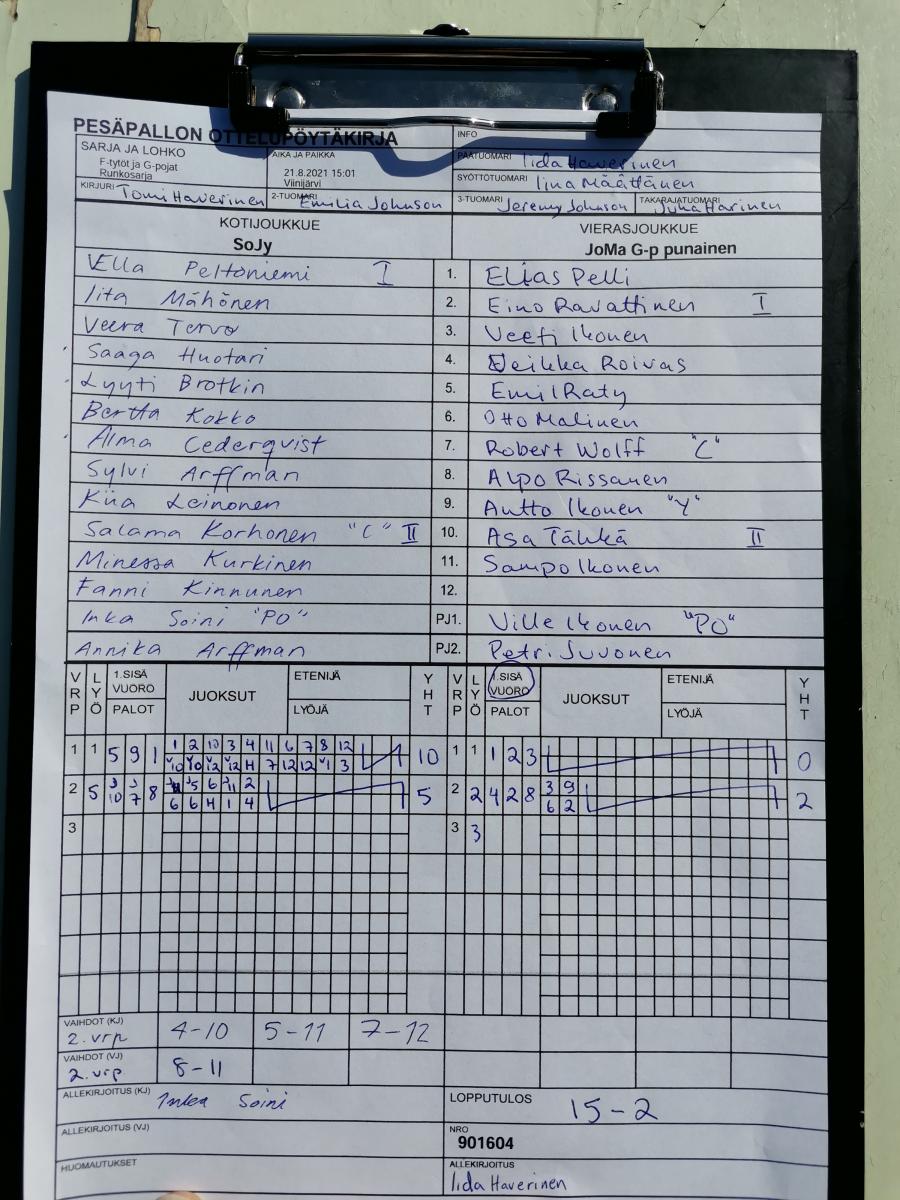 PESÄPALLON OTTELUPÖYTÄKIRJA
INFO
SARJA JA LOHKO
F-tytöt ja G-pojat
Runkosarja
AIKA JA PAIKKA
21.8.2021 15:01
Viinijärvi
PÄÄTUOMARI Iida Haverinen
SYÖTTÖTUOMARI Iina Määttänen
KIRJURI Tomi Haverinen
2-TUOMARI Emilia Johnson
3-TUOMARI Jeremy Johnson
TAKARAJATUOMARI Juha Harinen
KOTIJOUKKUE
SoJy
VIERASJOUKKUE
JoMa G-p punainen
Vella Peltoniemi I 1. Elias Pelli
Iita Mähönen 2. Eino Ravattinen I
Veera Tervo 3. Veeti Ikonen
Saaga Huotari 4. Veikka Roivas
Lyyti Brotkin 5. Emil Raty
Bertta Kokko 6. Otto Malinen
Alma Cederqvist 7. Robert Wolff "C"
Sylvi Arffman 8. Alpo Rissanen
Kiia Leinonen 9. Antto Ikonen "Y"
Salama Korhonen "C" II 10. Asa Tähkä II
Minessa Kurkinen 11. Sampo Ikonen
Fanni Kinnunen 12.
Inka Soini "PO" PJ1. Ville Ikonen "PO"
Annika Arffman PJ2. Petri Juvonen
VRP LYÖ 1.SISÄ VUORO PALOT JUOKSUT ETENIJÄ LYÖJÄ YHT VRP LYÖ 1.SISÄ VUORO PALOT JUOKSUT ETENIJÄ LYÖJÄ YHT
1 1 5 9 1 1 2 10 3 4 11 6 7 8 12 10 1 1 1 2 3 0
10 10 12 12 4 7 12 12 1 3
2 5 3 3 8 5 6 11 2 5 2 2 4 2 8 3 9 2
10 7 6 6 4 1 4 6 2
3 3 3
VAIHDOT (KJ)
2. vrp 4-10 5-11 7-12
VAIHDOT (VJ)
2. vrp 8-11
ALLEKIRJOITUS (KJ) Inka Soini
LOPPUTULOS 15-2
ALLEKIRJOITUS (VJ)
NRO
901604
HUOMAUTUKSET
ALLEKIRJOITUS
Iida Haverinen